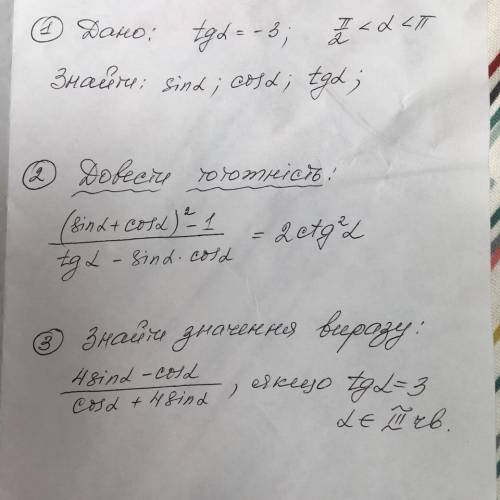 ① Дано: tgα = -3; π/2 < α < π
Знайти: sinα; cosα; tgα;
② Довести тотожність:
(sinα + cosα)² - 1 / tgα - sinα · cosα = 2ctg²α
③ Знайти значення виразу:
4sinα - cosα / cosα + 4sinα, якщо tgα = 3
α ∈ III чв.